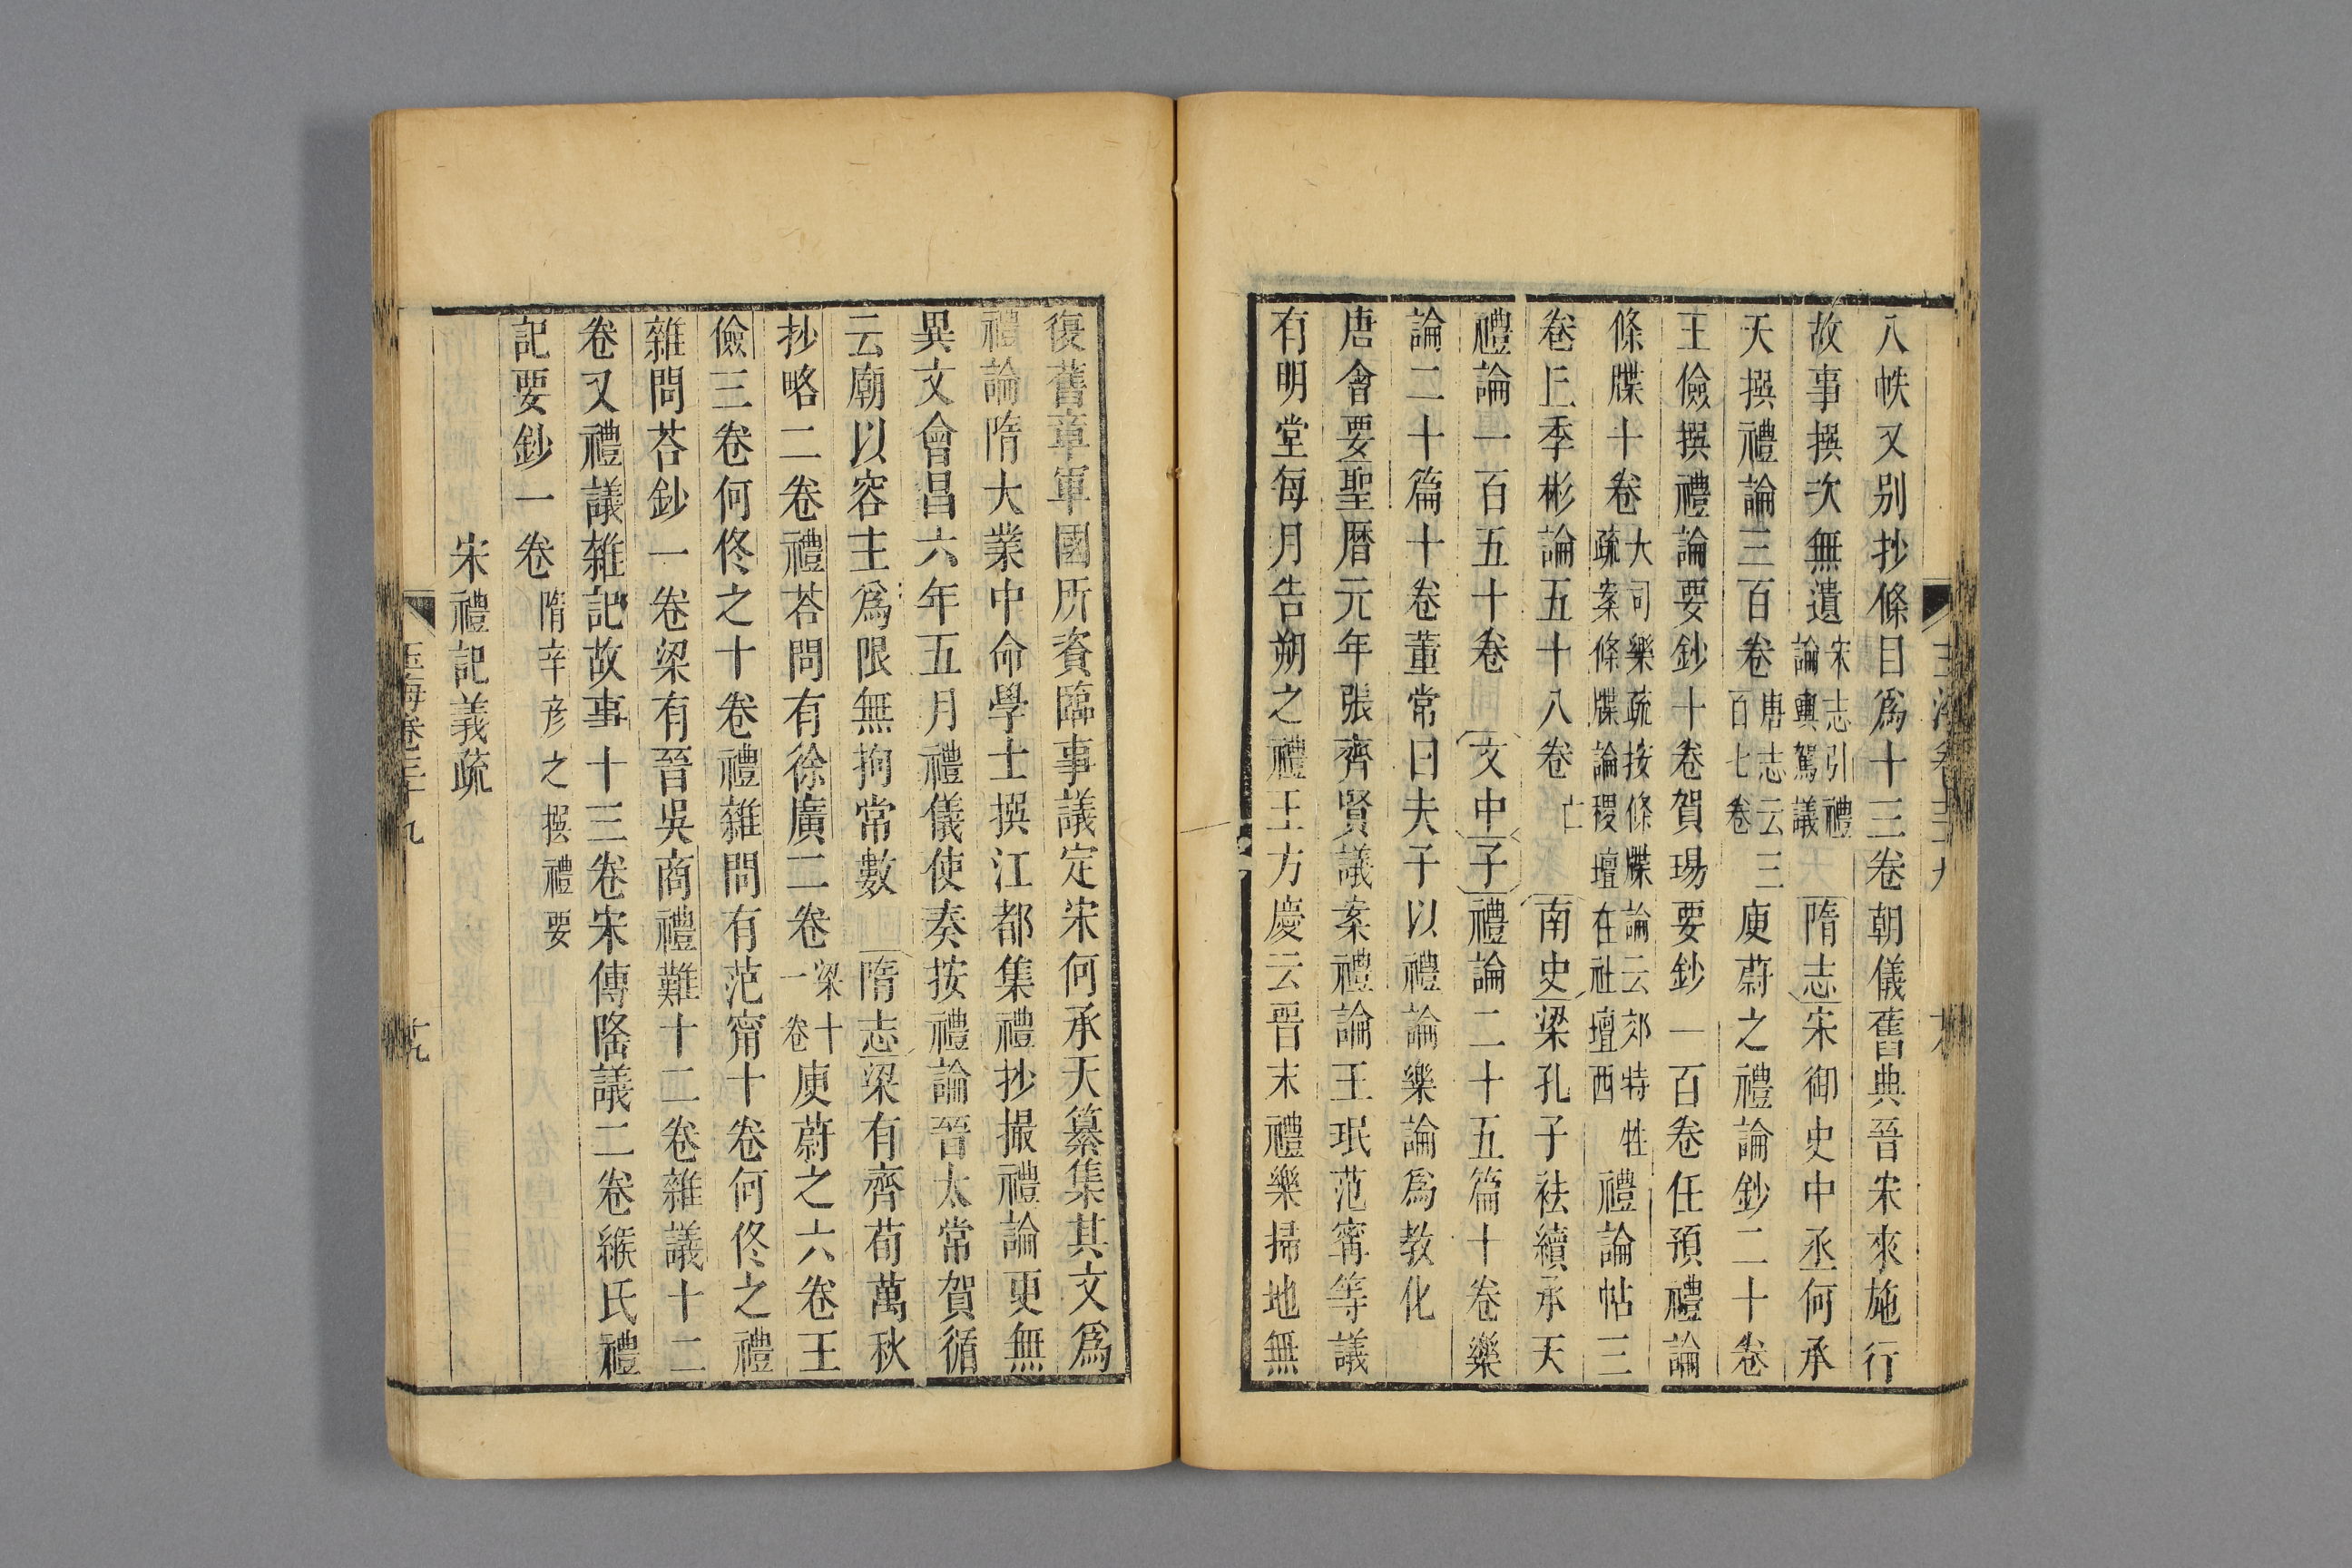 八帙又别抄條目爲十三卷朝儀舊典晉宋來施行
故事撰次無遺宋志引禮論輿駕議隋志宋御史中丞何承
天撰禮論三百卷唐志云三百七卷庾蔚之禮論鈔二十卷
王儉撰禮論要鈔十卷賀瑒要鈔一百卷任預禮論
條牒十卷大司樂疏按條牒論云郊特牲疏案條牒論稷壇在社壇西禮論帖三
卷丘季彬論五十八卷亡南史梁孔子袪續承天
禮論一百五十卷文中子禮論二十五篇十卷樂
論二十篇十卷董常曰夫子以禮論樂論爲教化
唐會要聖曆元年張齊賢議案禮論王珉范甯等議
有明堂每月告朔之禮王方慶云晉末禮樂掃地無
復舊章軍國所資臨事議定宋何承天纂集其文爲
禮論隋大業中命學士撰江都集禮抄撮禮論更無
異文會昌六年五月禮儀使奏按禮論晉太常賀循
云廟以容主爲限無拘常數隋志梁有齊荀萬秋
抄略二卷禮荅問有徐廣二卷梁十一卷庾蔚之六卷王
儉三卷何佟之十卷禮雜問有范甯十卷何佟之禮
雜問荅鈔一卷梁有晉吳商禮難十二卷雜議十二
卷又禮議雜記故事十三卷宋傅隆議二卷緱氏禮
記要鈔一卷隋辛彦之撰禮要
宋禮記義疏
玉海卷三十九